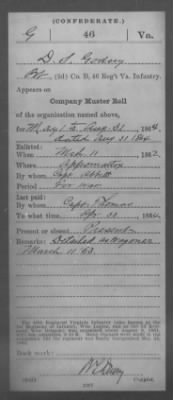 (CONFEDERATE.)
G 46 Va.
D. S. Godsey
Pvt, (2d) Co. B, 46 Reg't Va. Infantry.
Appears on
Company Muster Roll
of the organization named above,
for May 1 to Aug. 31, 1864.
dated Aug 31 1864
Enlisted:
When Mch. 11, 1862
Where Appomattox
By whom Capt. Abbitt
Period For war
Last paid:
By whom Capt. Thomas
To what time Apr. 30, 1864.
Present or absent Present
Remarks: Detailed as Wagoner
March 11 63.
Book mark: